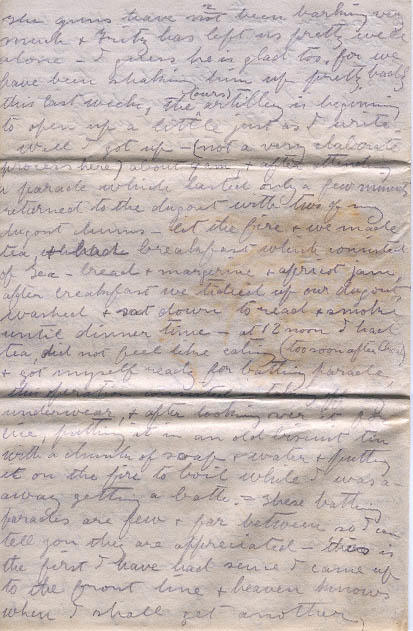 The guns have not been barking very
much & Fritz has left us pretty well
alone - I guess he is glad too, for we
have been shaking him up pretty badly
this last week, the (ours) artillery is beginning
to open up a little just as I write
Well I got up - (not a very elaborate
process here) about & after
a parade which lasted only a few minutes
returned to the dugout with two of my
dugout chums - lit the fire & we made
tea, & had breakfast which consisted
of tea - bread & margerine & apricot jam,
after breakfast we tidied up our dugout,
washed & sat down to read & smoke
until dinner time - at 12 noon I had
tea, did not feel like eating (too soon after
& got myself ready for bathing parade,
this operation
underwear, & after looking over it for
lice, putting it in an old biscuit tin
with a chunk of soap & water & putting
it on the fire to boil while I was a-
away getting a bath. - These bathing
parades are few & far between so I can
tell you they are appreciated - this is
the first I have had since I came up
to the front line & heaven knows
when I shall get another,